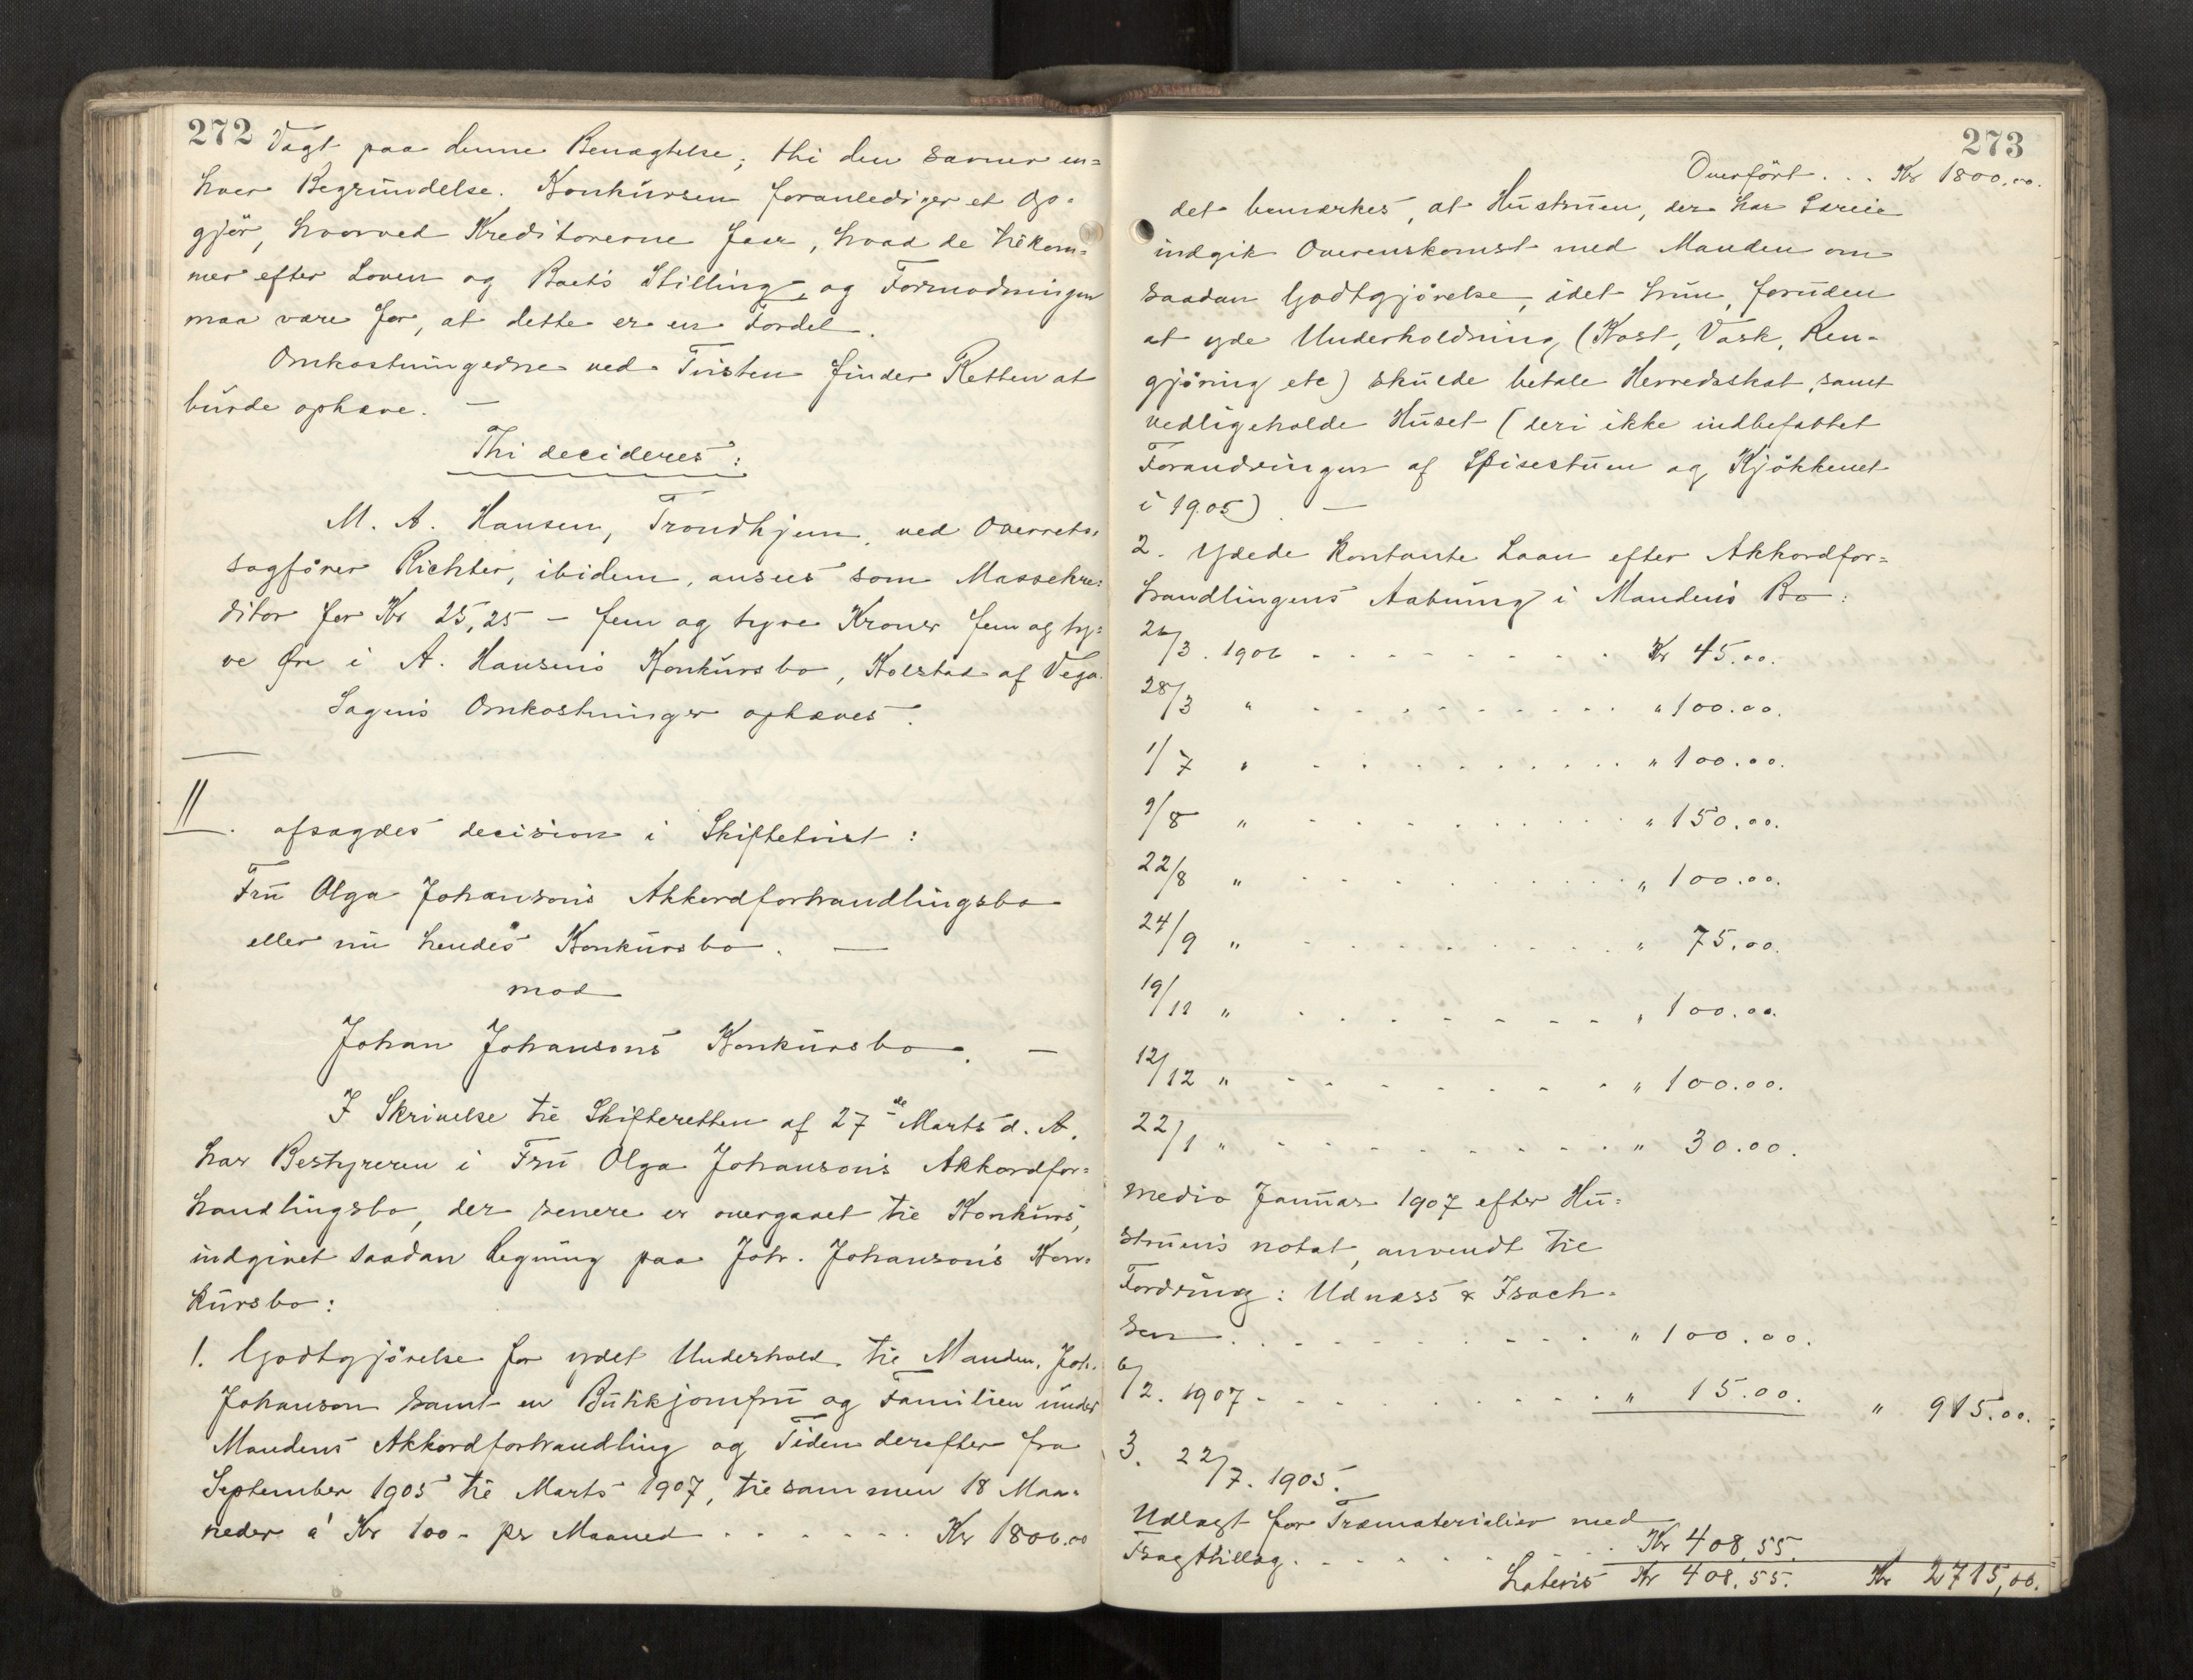 272
Vægt paa denne Benægtelse; thi den savner en=
hver Begrundelse. Konkursen foranlediger et Op=
gjør, hvorved Kreditorerne faar, hvad de tilkom=
mer efter Loven og Boets Stilling, og Formodningen
maa være for, at dette er en Fordel.
Omkostningerne ved Tvisten finder Retten at
burde ophæve. —
Thi decideres:
M. A. Hansen, Trondhjem, ved Overrets=
sagfører Richter, ibidem, ansees som Massekre=
ditor for Kr 25,25 - fem og tyve Kroner fem og ty=
ve Øre i A. Hansens Konkursbo, Kolstad af Vega.
Sagens Omkostninger ophæves.
II. afsagdes decision i Skiftetvist:
Fru Olga Johansons Akkordforhandlingsbo
eller nu hendes Konkursbo. —
mod
Johan Johansons Konkursbo. —
I Skrivelse til Skifteretten af 27de Marts d. A.
har Bestyreren i Fru Olga Johanson's Akkordfor=
handlingsbo, der senere er overgaaet til Konkurs,
indgivet saadan Regning paa Joh. Johanson's Kon=
kursbo:
1. Godtgjørelse for ydet Underhold til Manden, Joh.
Johanson samt en Butikjomfru og Familien under
Mandens Akkordforhandling og Tiden derefter fra
September 1905 til Marts 1907, tilsammen 18 Maa=
neder á Kr 100 - pr Maaned . . . . . . Kr 1800.00
273
Overført . . . Kr 1800.00.
det bemærkes, at Hustruen, der har Særeie
indgik Overenskomst med Manden om
saadan Godtgjørelse, idet hun, foruden
at yde Underholdning (Kost, Vask, Ren=
gjøring etc) skulde betale Herredsskat, samt
vedligeholde Huset (deri ikke indbefattet
Forandringen af Spisestuen og Kjøkkenet
i 1905). —
2. Ydede kontante Laan efter Akkordfor=
handlingens Aabning i Mandens Bo:
26/3. 1906 . . . . . . . . . Kr 45.00.
28/3 " . . . . . . . . . " 100.00.
1/7 " . . . . . . . . . " 100.00.
9/8 " . . . . . . . . . " 150.00.
22/8 " . . . . . . . . . " 100.00.
24/9 " . . . . . . . . . " 75.00.
19/11 " . . . . . . . . . " 100.00.
12/12 " . . . . . . . . . " 100.00.
22/1 " . . . . . . . . . " 30.00.
Medio Januar 1907 efter Hu=
struens notat, anvendt til
Fordring: Udnæss & Isach=
sen . . . . . . . . . " 100.00.
6/2. 1907 . . . . . . . . . " 15.00. " 915.00.
3. 22/7. 1905.
Udlagt for Træmaterialier med
Fragttillæg . . . . . . . . Kr 408.55.
Lateris Kr 408.55. Kr 2715,00.